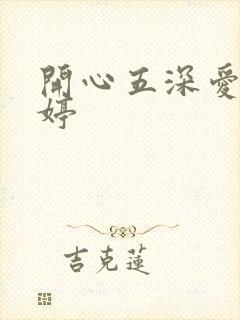 開心五深愛
婷
吉克蓮